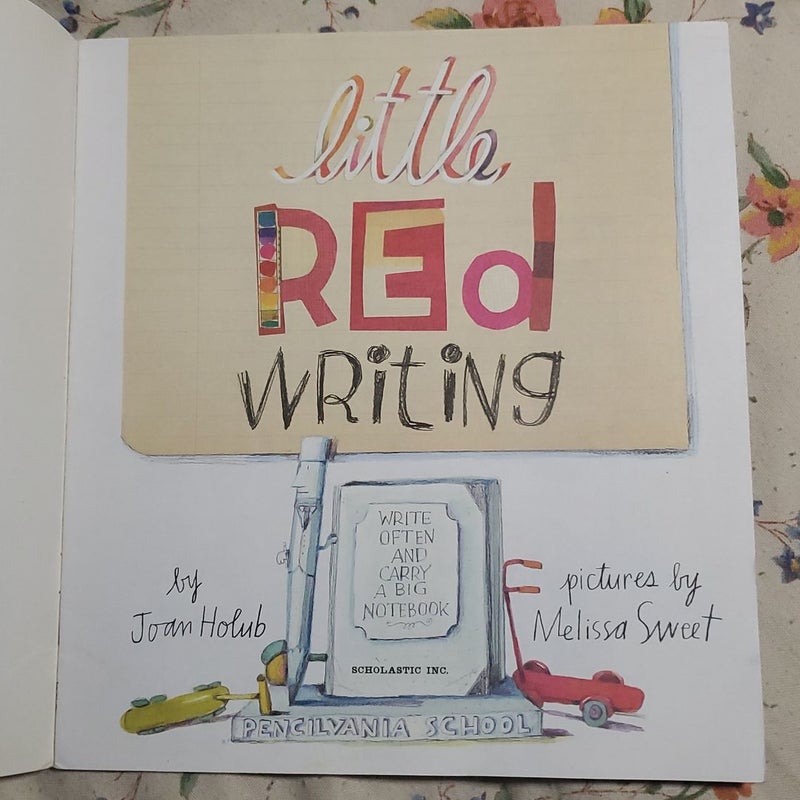 little
REd
WRiTiNg
WRITE
OFTEN
AND
CARRY
A BIG
NOTEBOOK
by
Joan Holub
pictures by
Melissa Sweet
SCHOLASTIC INC.
PENCILVANIA SCHOOL